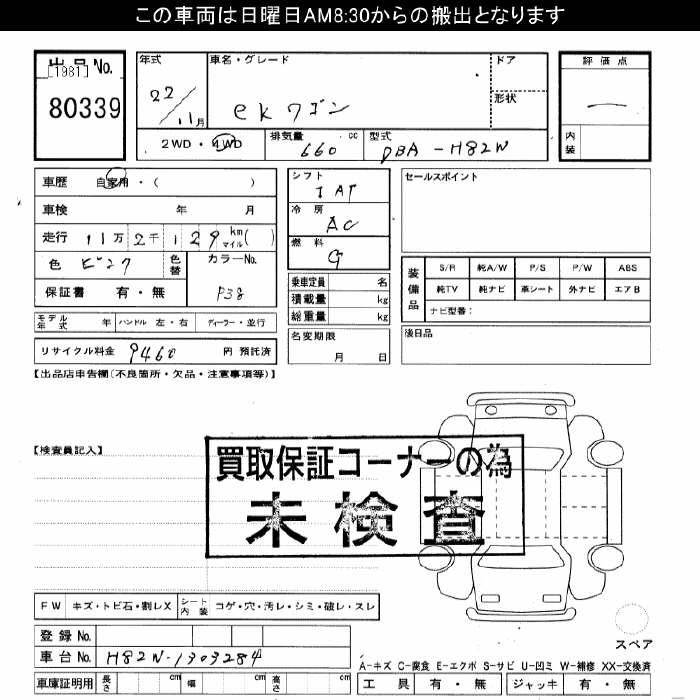 この車両は日曜日AM8:30からの搬出となります
出品No.
[1981]
80339
年式
22/11月
車名・グレード
ekワゴン
ドア
形状
評価点
内装
2WD・4WD
排気量
660 cc
型式
DBA-H82W
車歴 自家用・( )
車検 年 月
走行 11万2千129 km マイル( )
色 ピンク
色替
カラーNo.
P38
保証書 有・無
シフト
IAT
冷房
AC
燃料
G
乗車定員 名
積載量 kg
総重量 kg
セールスポイント
装備品
S/R 純A/W P/S P/W ABS
純TV 純ナビ 革シート 外ナビ エアB
ナビ型番:
モデル年式 年 ハンドル 左・右 ディーラー・並行
名変期限
月 日
後日品
リサイクル料金 9460 円 預託済
【出品店申告欄(不良箇所・欠品・注意事項等)】
【検査員記入】
買取保証コーナーの為
未検査
FW キズ・トビ石・割レX シート内装 コゲ・穴・汚レ・シミ・破レ・スレ
スペア
登録No.
車台No. H82W-1303284
A-キズ C-腐食 E-エクボ S-サビ U-凹ミ W-補修 XX-交換済
車庫証明用 長さ cm 幅 cm 高さ cm
工具 有・無 ジャッキ 有・無